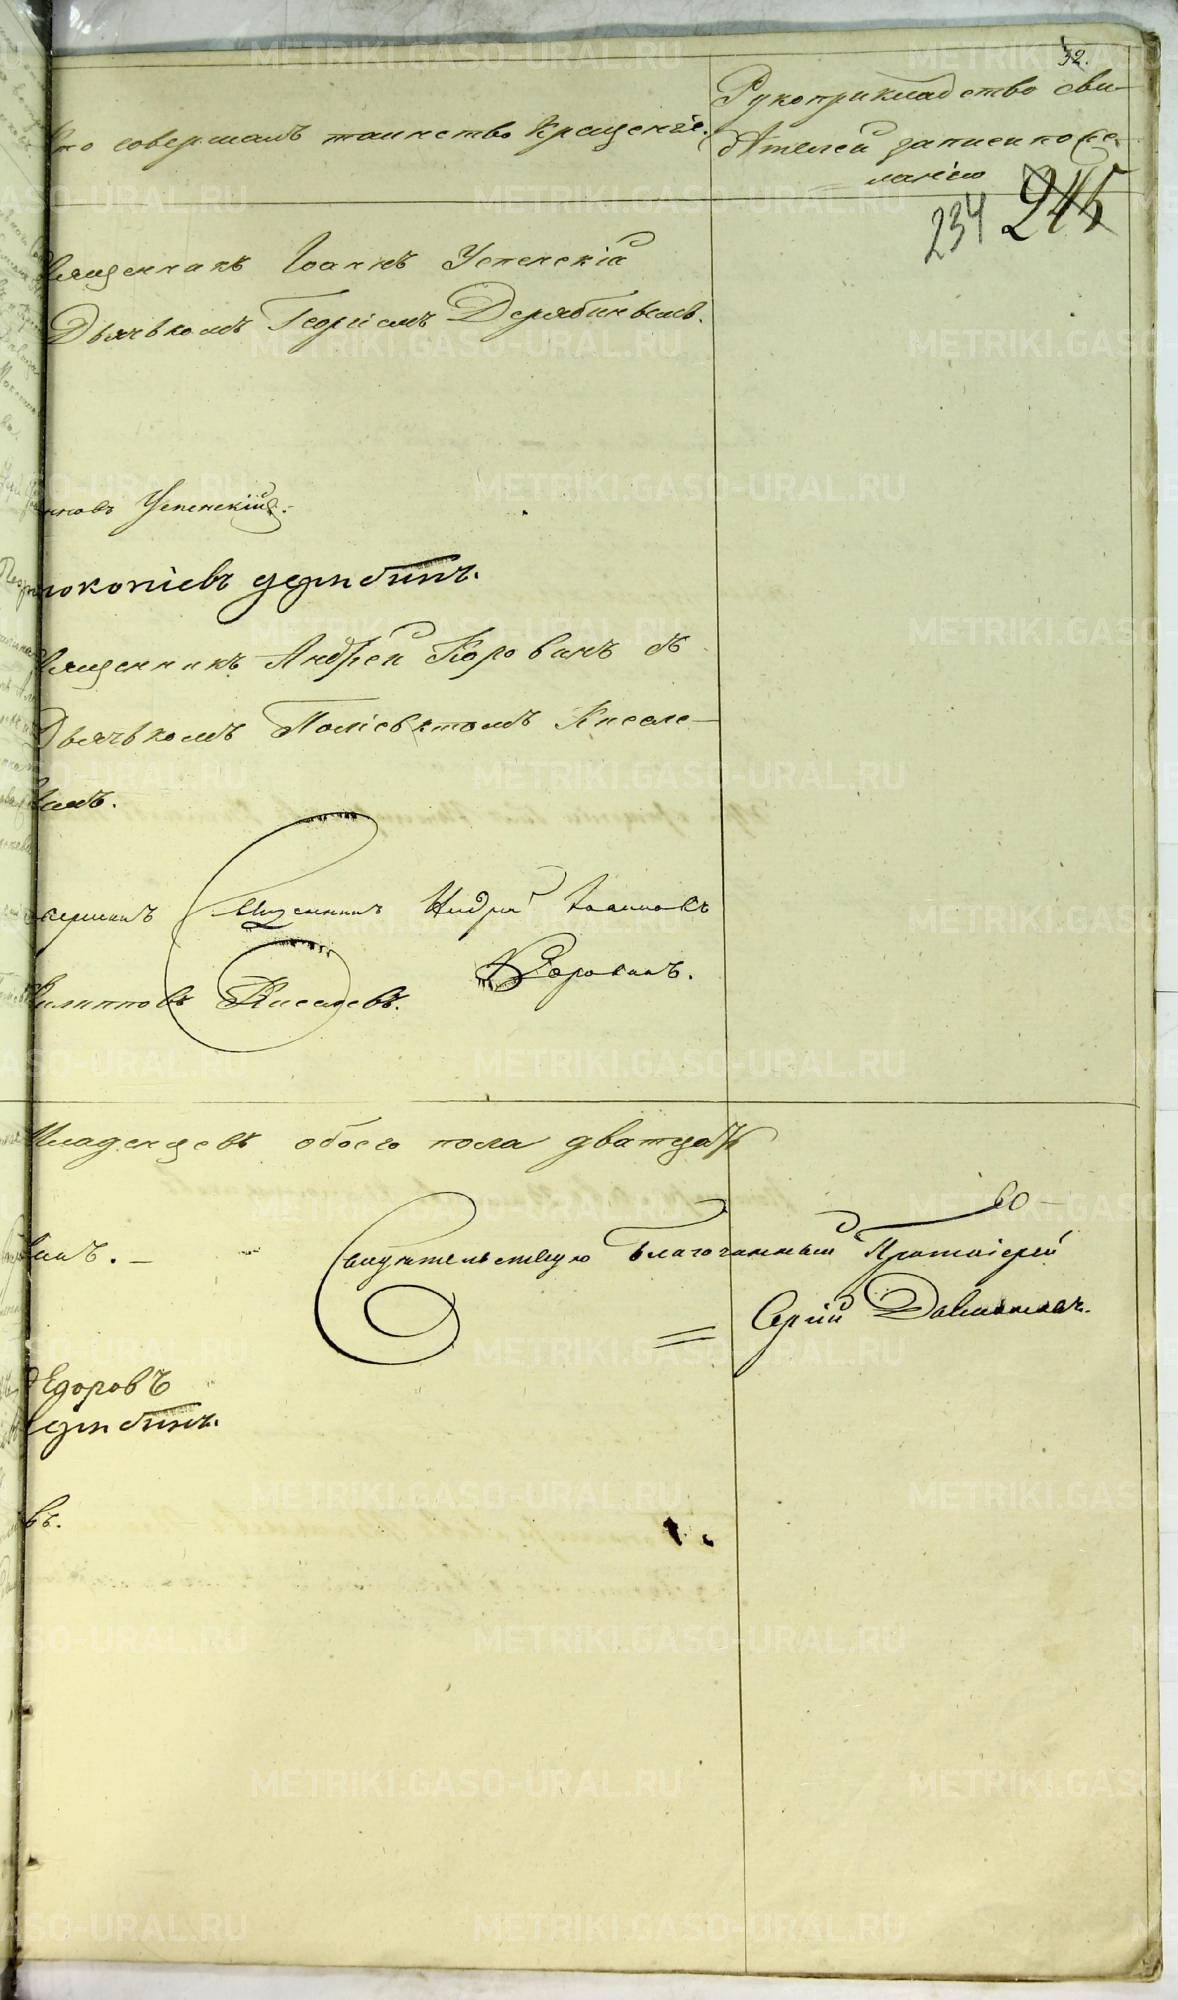 32.
Кто совершалъ таинство Крещенiе.
Рукоприкладство сви-
дѣтелей записи по же-
ланiю
234 245
Священникъ Iоаннъ Успенскiй
Дьячькомъ Георгiемъ Дерябинымъ.
нновъ Успенскiй.
рокопiевъ Дерябинъ.
Священникъ Андрей Коровинъ съ
Дьячькомъ Полiевктомъ Киселе-
вымъ.
Священникъ Андрей Iоанновъ
Коровинъ.
Филипповъ Киселевъ.
Младенцевъ обоего пола дватцать
винъ.
Свидѣтельствую Благочинный Протоiерей
Сергiй
Едоровъ
Дерябинъ.
въ.
METRIKI.GASO-URAL.RU